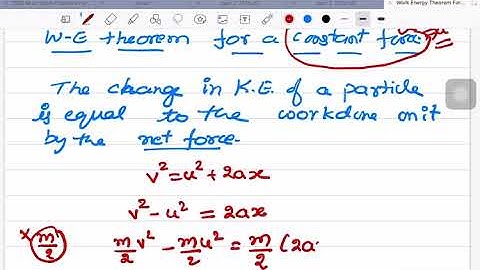 W-E theorem for a constant force.
The change in K.E. of a particle
is equal to the workdone on it
by the net force.
v² = u² + 2ax
v² - u² = 2ax
x m/2 m/2 v² - m/2 u² = m/2 (2a